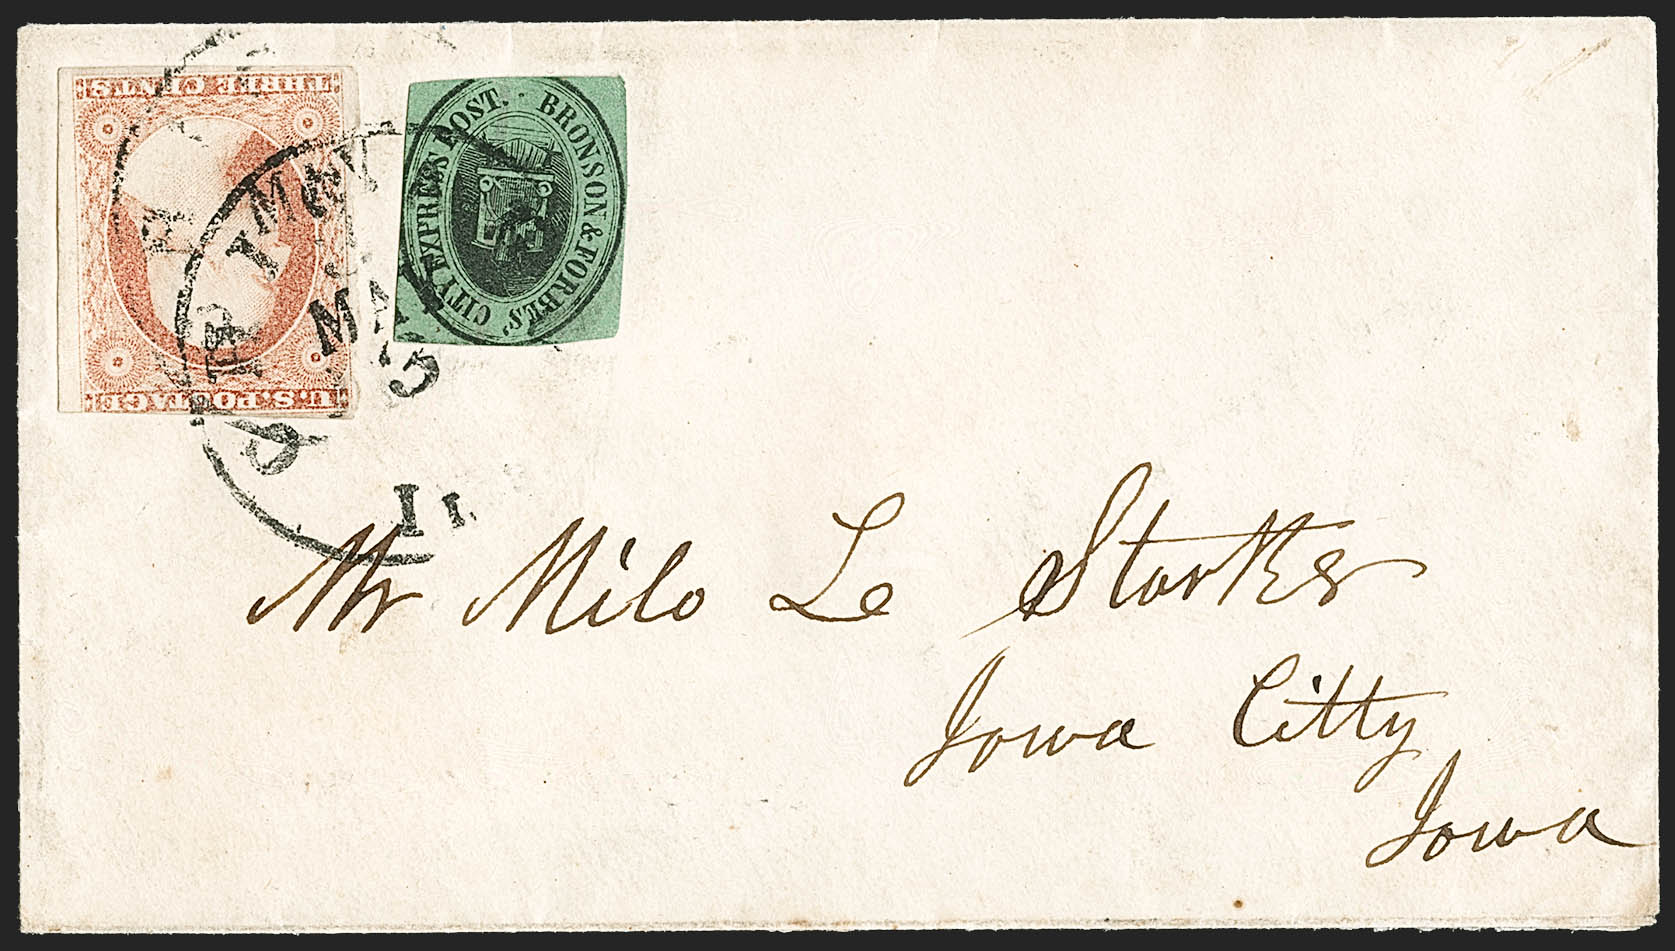 THREE CENTS
U.S. POSTAGE
BRONSON & FORBES' CITY EXPRESS POST.
MAY
Mr Milo Le Starker
Iowa Citty
Iowa